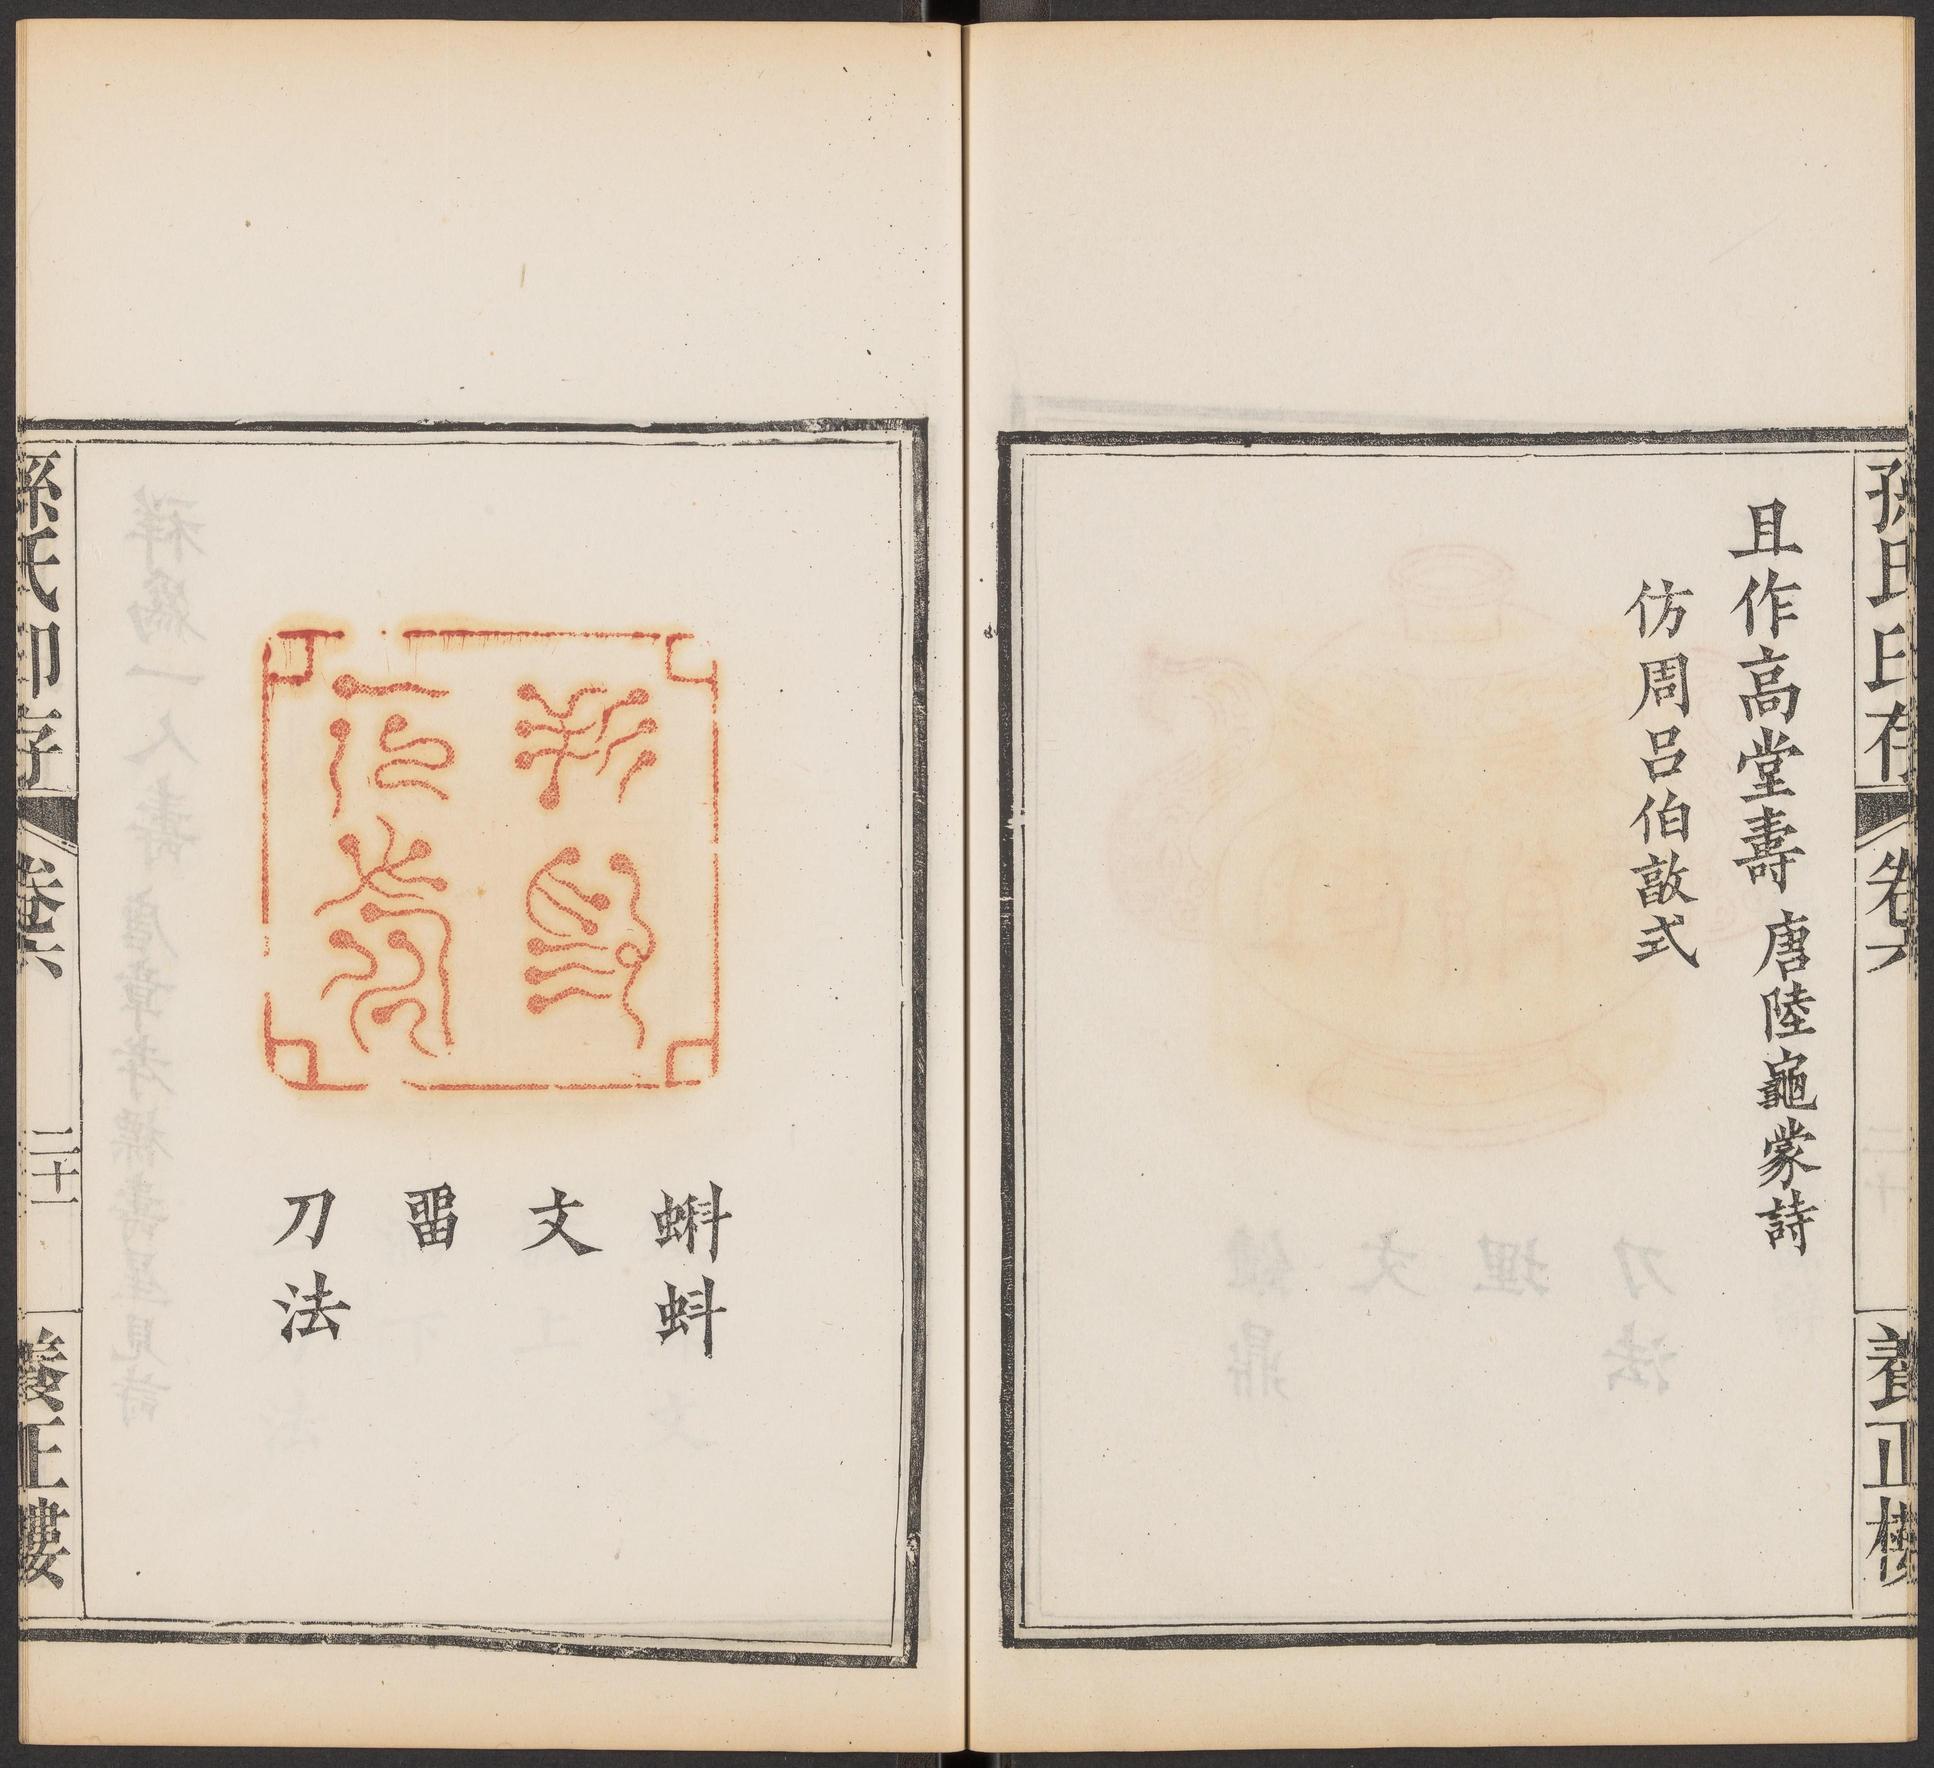 孫氏印存
卷六
養正樓
且作高堂壽 唐陸龜蒙詩
仿周呂伯敦式
蝌蚪
文
畱
刀法
孫氏印存
卷六
二十一
養正樓